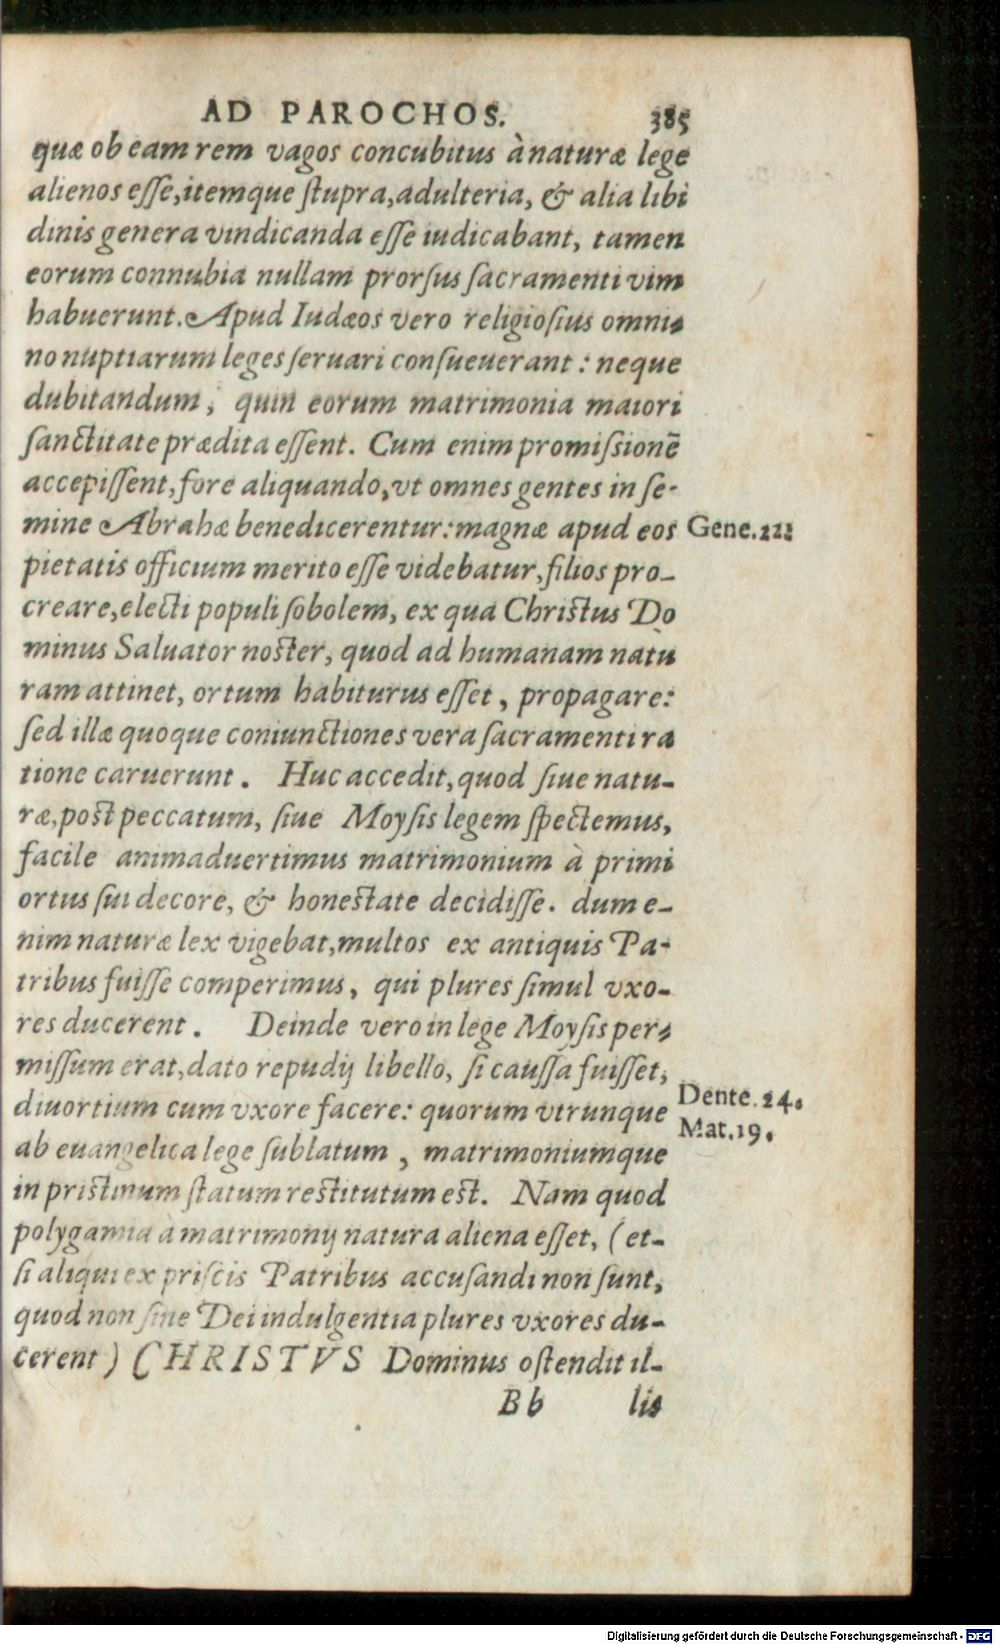 AD PAROCHOS. 385
quæ ob eam rem vagos concubitus à naturæ lege
alienos eſſe, itemque ſtupra, adulteria, & alia libi
dinis genera vindicanda eſſe iudicabant, tamen
eorum connubia nullam prorſus ſacramenti vim
habuerunt. Apud Iudæos vero religioſius omni-
no nuptiarum leges ſeruari conſueuerant: neque
dubitandum, quin eorum matrimonia maiori
ſanctitate prædita eſſent. Cum enim promiſsionē
accepiſſent, fore aliquando, vt omnes gentes in ſe-
mine Abrahæ benedicerentur: magnæ apud eos
Gene.22
pietatis officium merito eſſe videbatur, filios pro-
creare, electi populi ſobolem, ex qua Chriſtus Do
minus Saluator noſter, quod ad humanam natu
ram attinet, ortum habiturus eſſet, propagare:
ſed illæ quoque coniunctiones vera ſacramenti ra
tione caruerunt. Huc accedit, quod ſiue natu-
ræ, poſt peccatum, ſiue Moyſis legem ſpectemus,
facile animaduertimus matrimonium à primi
ortus ſui decore, & honeſtate decidiſſe. dum e-
nim naturæ lex vigebat, multos ex antiquis Pa-
tribus fuiſſe comperimus, qui plures ſimul vxo-
res ducerent. Deinde vero in lege Moyſis per-
miſſum erat, dato repudij libello, ſi cauſſa fuiſſet,
diuortium cum vxore facere: quorum vtrunque
Dente.24.
Mat.19.
ab euangelica lege ſublatum, matrimoniumque
in priſtinum ſtatum reſtitutum eſt. Nam quod
polygamia à matrimonij natura aliena eſſet, (et-
ſi aliqui ex priſcis Patribus accuſandi non ſunt,
quod non ſine Dei indulgentia plures vxores du-
cerent) CHRISTVS Dominus oſtendit il-
Bb lis
Digitalisierung gefördert durch die Deutsche Forschungsgemeinschaft - DFG